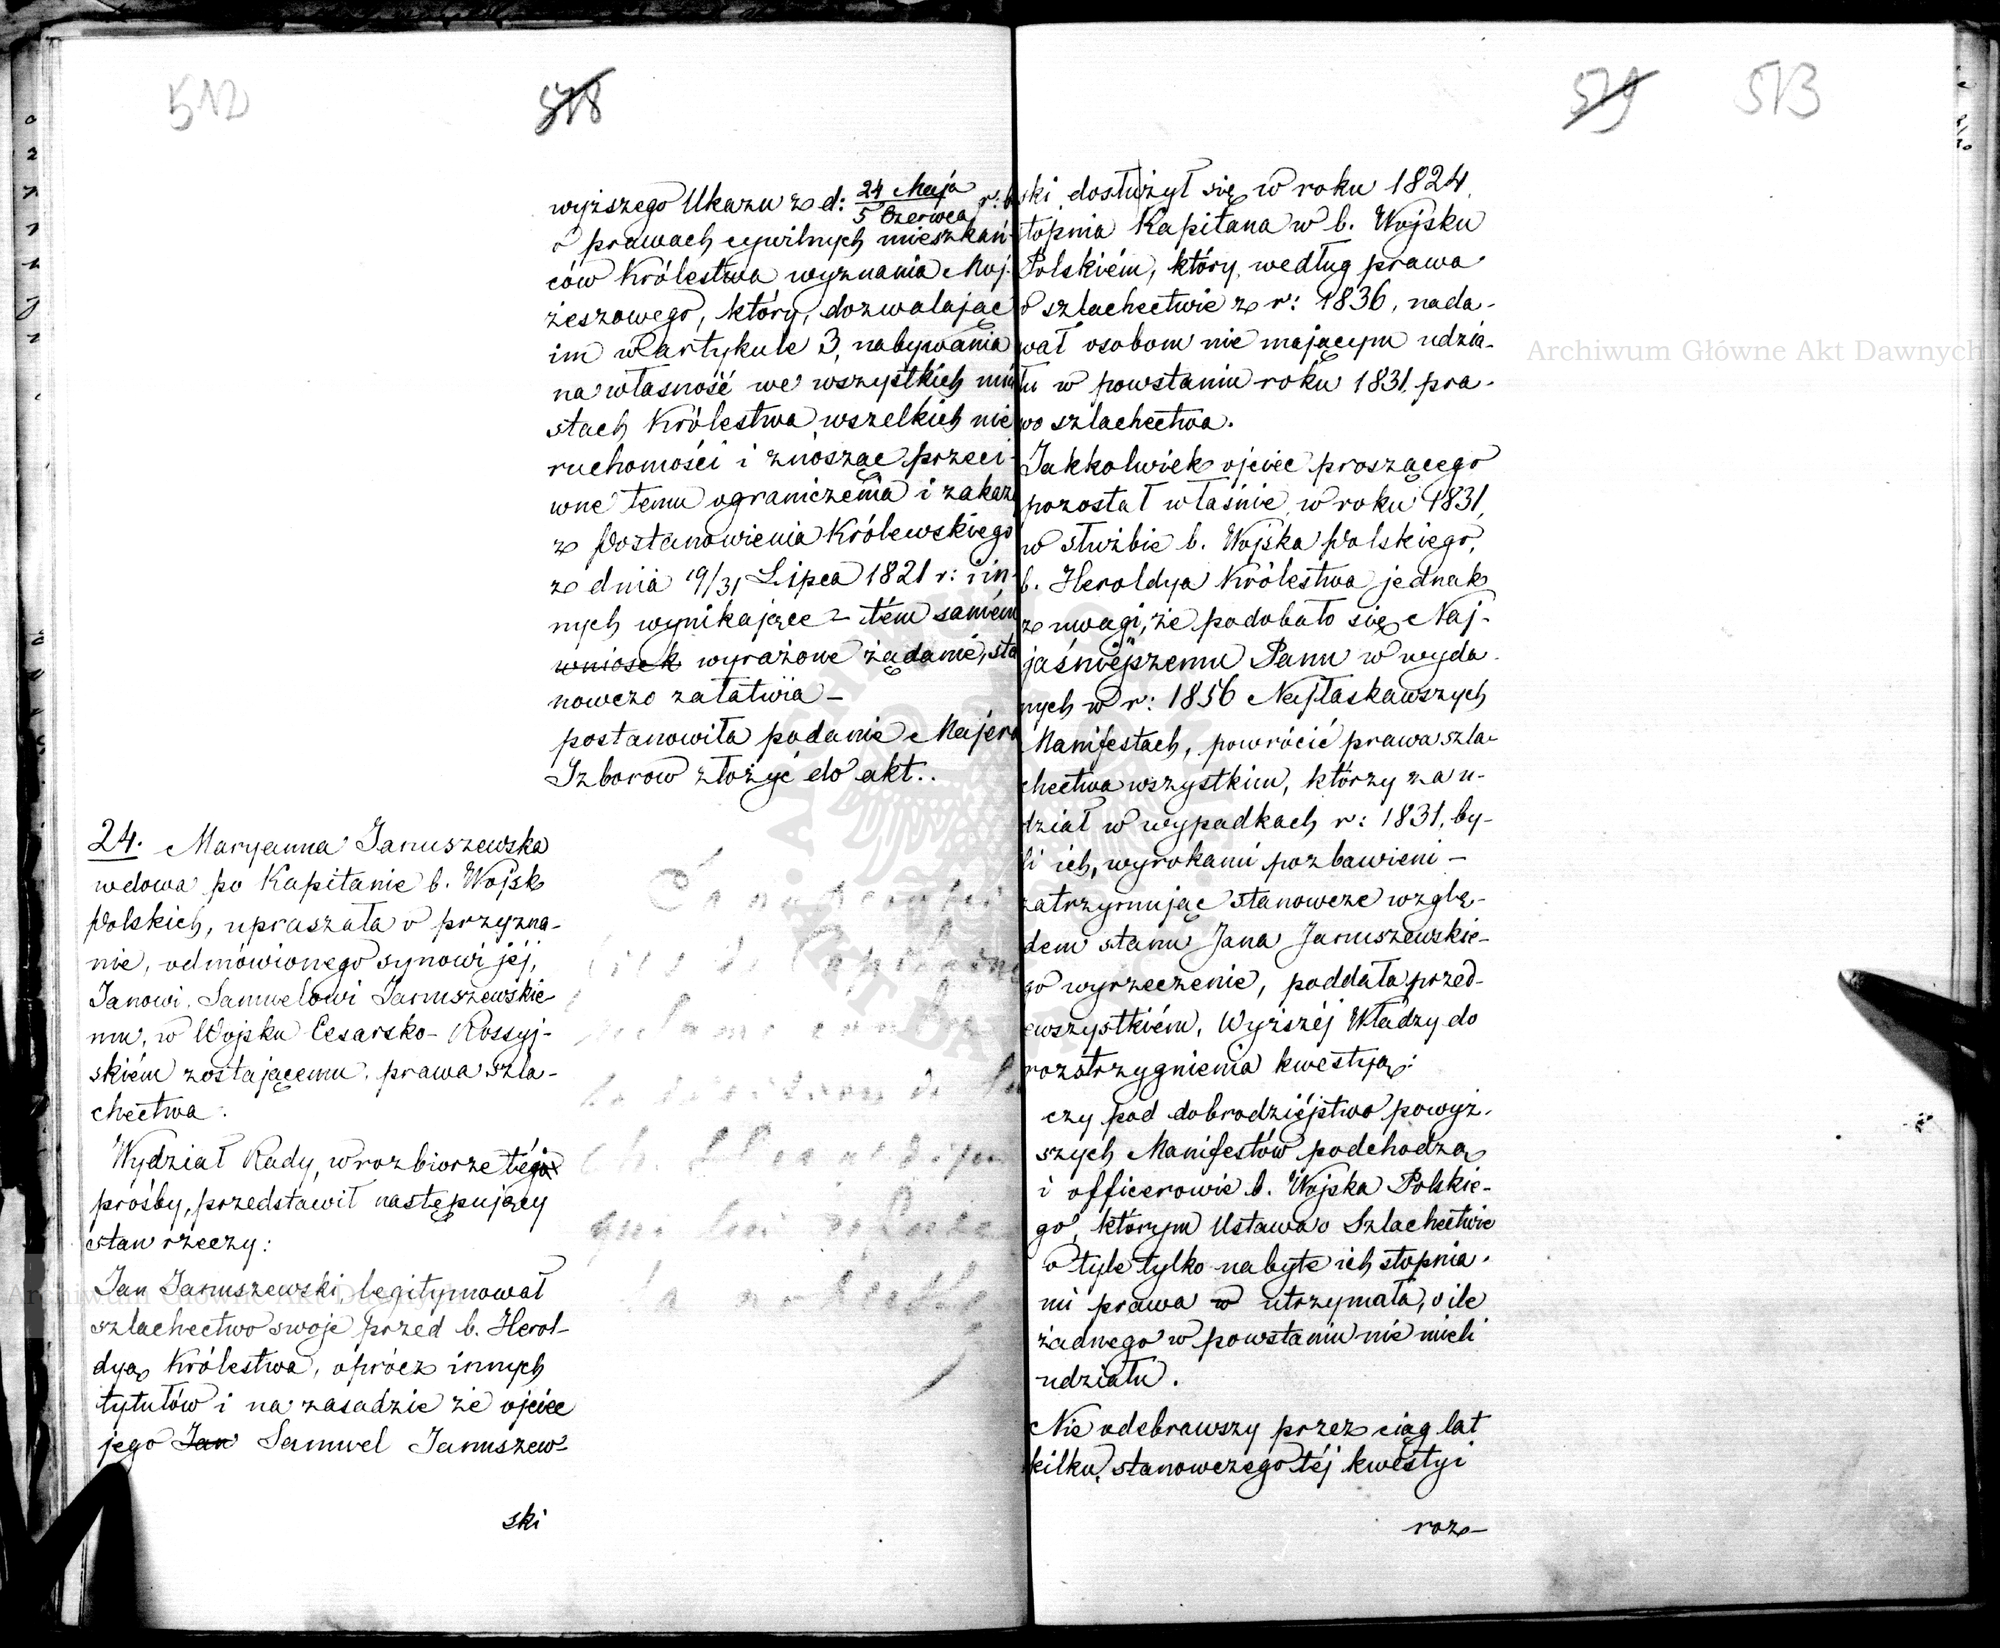 512
518
wyższego Ukazu z d: 24 Maja / 5 Czerwca r: b
o prawach cywilnych mieszkań-
ców Królestwa wyznania Moj-
żeszowego, który, dozwalając
im w artykule 3, nabywania
na własność we wszystkich mia
stach Królestwa, wszelkich nie
ruchomości i znosząc przeci-
wne temu ograniczenia i zakaz
z Postanowienia Królewskiego
z dnia 19/31 Lipca 1821 r: i in-
nych wynikające – tém samém
wniosek wyrażone żądanie, sta
nowczo załatwia –
postanowiła podanie Majera
Izborow złożyć do akt..
24. Maryanna Januszewska
wdowa po Kapitanie b. Wojsk
Polskich, upraszała o przyzna-
nie, odmówionego synowi jéj,
Janowi Samuelowi Januszewskie
mu, w Wojsku Cesarsko-Rossyj-
skiém zostającemu, prawa szla-
chectwa.
Wydział Rady, w rozbiorze téj
prośby, przedstawił następujący
stan rzeczy:
Jan Januszewski, legitymował
szlachectwo swoje przed b. Herol-
dyą Królestwa, oprócz innych
tytułów i na zasadzie że ojciec
jego Jan Samuel Januszew-
ski
519
513
ski, dosłużył się w roku 1824,
stopnia Kapitana w b. Wojsku
Polskiém, który, według prawa
o szlachectwie z r: 1836, nada-
wał osobom nie mającym udzia-
łu w powstaniu roku 1831, pra-
wo szlachectwa.
Jakkolwiek ojciec proszącego
pozostał właśnie, w roku 1831,
w służbie b. Wojska Polskiego,
b. Heroldya Królestwa jednak
z uwagi, że podobało się Naj-
jaśniejszemu Panu w wyda-
nych w r: 1856 Najłaskawszych
Manifestach, powrócić prawa szla-
chectwa wszystkim, którzy za u-
dział w wypadkach r: 1831, by-
li ich, wyrokami pozbawieni –
zatrzymując stanowcze wzglę-
dem stanu Jana Januszewskie-
go wyrzeczenie, poddała przed-
ewszystkiém, Wyższéj Władzy do
rozstrzygnienia kwestyą:
czy pod dobrodziéjstwo powyż-
szych Manifestów podchodzą
i officerowie b. Wojska Polskie-
go, którym Ustawa o Szlachectwie
o tyle tylko nabyte ich stopnia-
mi prawa w utrzymała, o ile
żadnego w powstaniu nie mieli
udziału.
Nie odebrawszy przez ciąg lat
kilku, stanowczego téj kwestyi
roz-
Archiwum Główne Akt Dawnych
Archiwum Główne Akt Dawnych